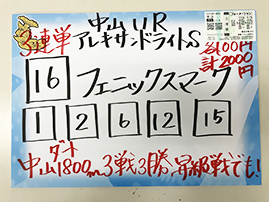 中山11R
3連単 アレキサンドライトS
各100円
計2000円
16 フェニックスマーク
1 2 6 12 15
ダート
中山1800m3戦3勝、昇級戦でも!